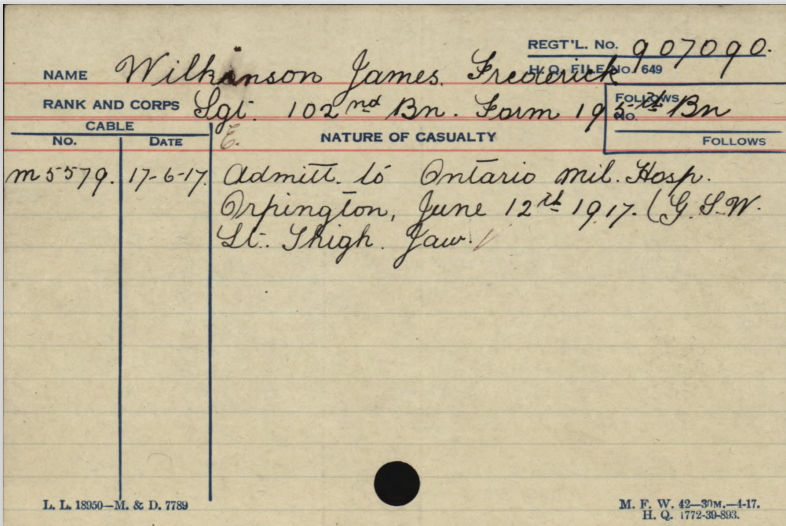 REGT'L. No. 907090.
NAME Wilkinson James Frederick H. Q. FILE No. 649
RANK AND CORPS Sgt. 102nd Bn. Form 195th Bn FOLLOWS No.
CABLE
No. DATE E. NATURE OF CASUALTY FOLLOWS
M5579. 17-6-17. Admitt. to Ontario Mil. Hosp.
Orpington, June 12th 1917. (G.S.W.
Lt. Thigh. Jaw.)
L. L. 18950—M. & D. 7789
M. F. W. 42—30M.—4-17.
H. Q. 1772-39-893.